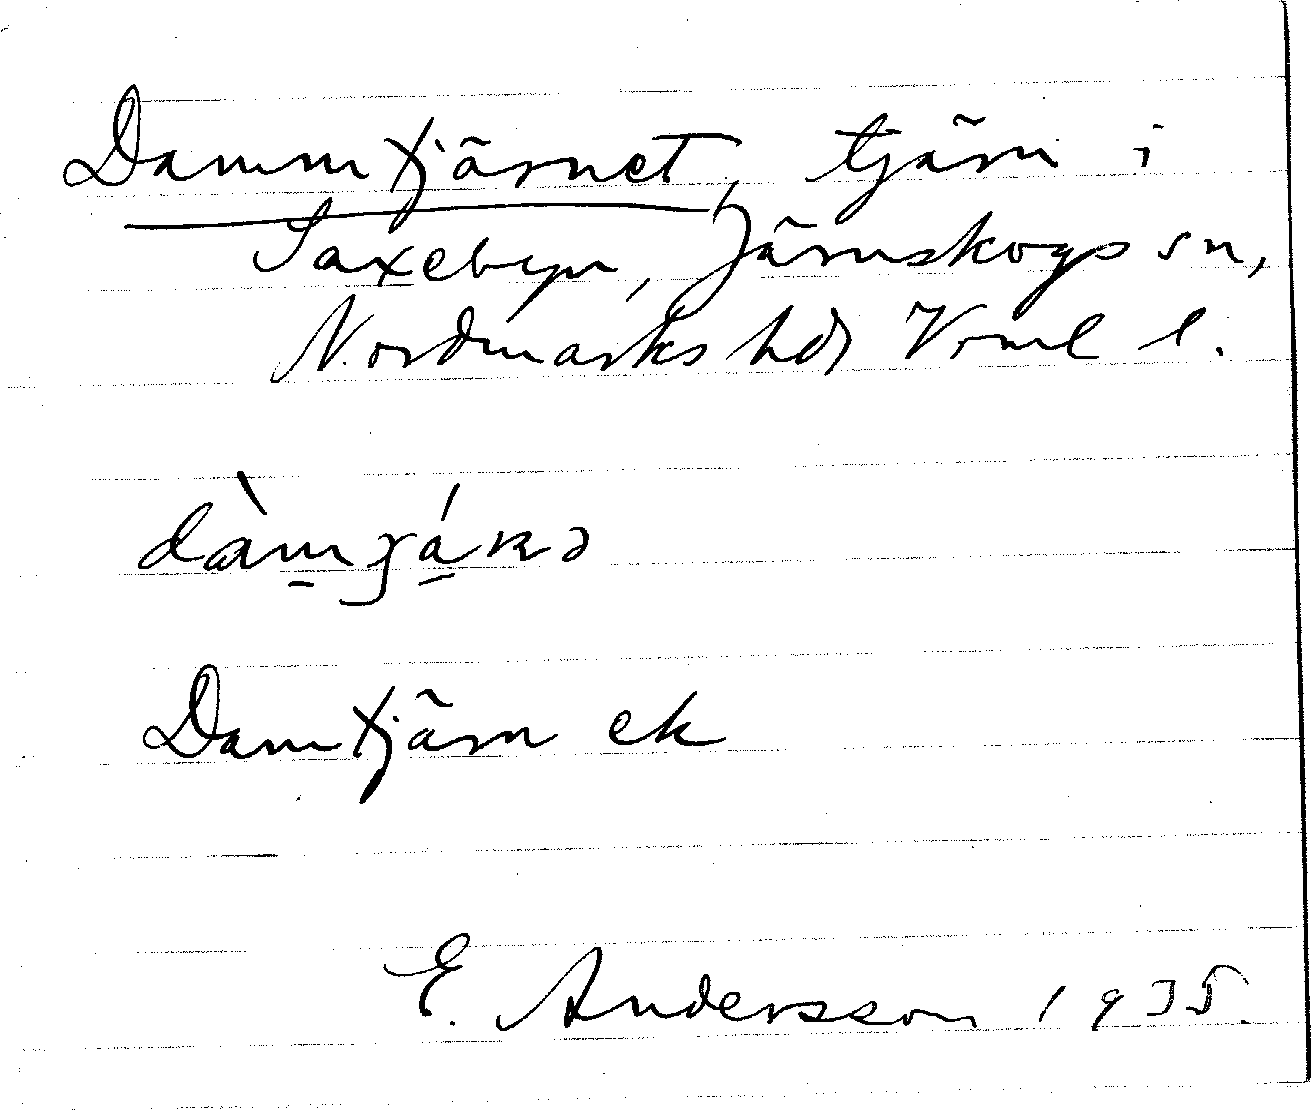 Dammtjärnet, tjärn i
Saxebyn, Järnskogs sn,
Nordmarks hd, Vrml l.
Damtjärn ek
E. Andersson 1935.